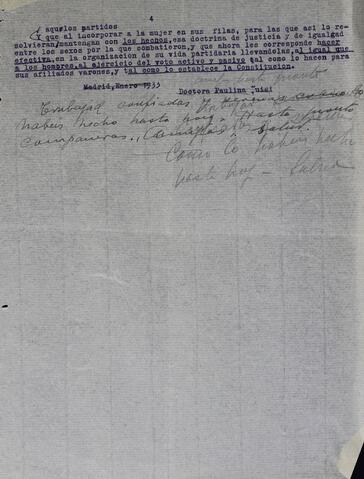 4
aquelos partidos
y que al incorporar a la mujer en sus filas, para las que así lo re-
solvieran, mantengan con los hechos, esa doctrina de justicia y de igualdad
entre los sexos por la que combatieron, y que ahora les corresponde hacer
efectiva, en la organización de su vida partidaria llevándolas, al igual que
a los hombres, al ejercicio del voto activo y pasivo tal como lo hacen para
sus afiliados varones, y tal como lo establece la Constitución.
Madrid, Enero 1933 Doctora Paulina Luisi
Trabajad confiadas
habéis hecho hasta hoy. Hasta pronto
compañeras. Salud.
Como lo habéis hecho
hasta hoy - Salud